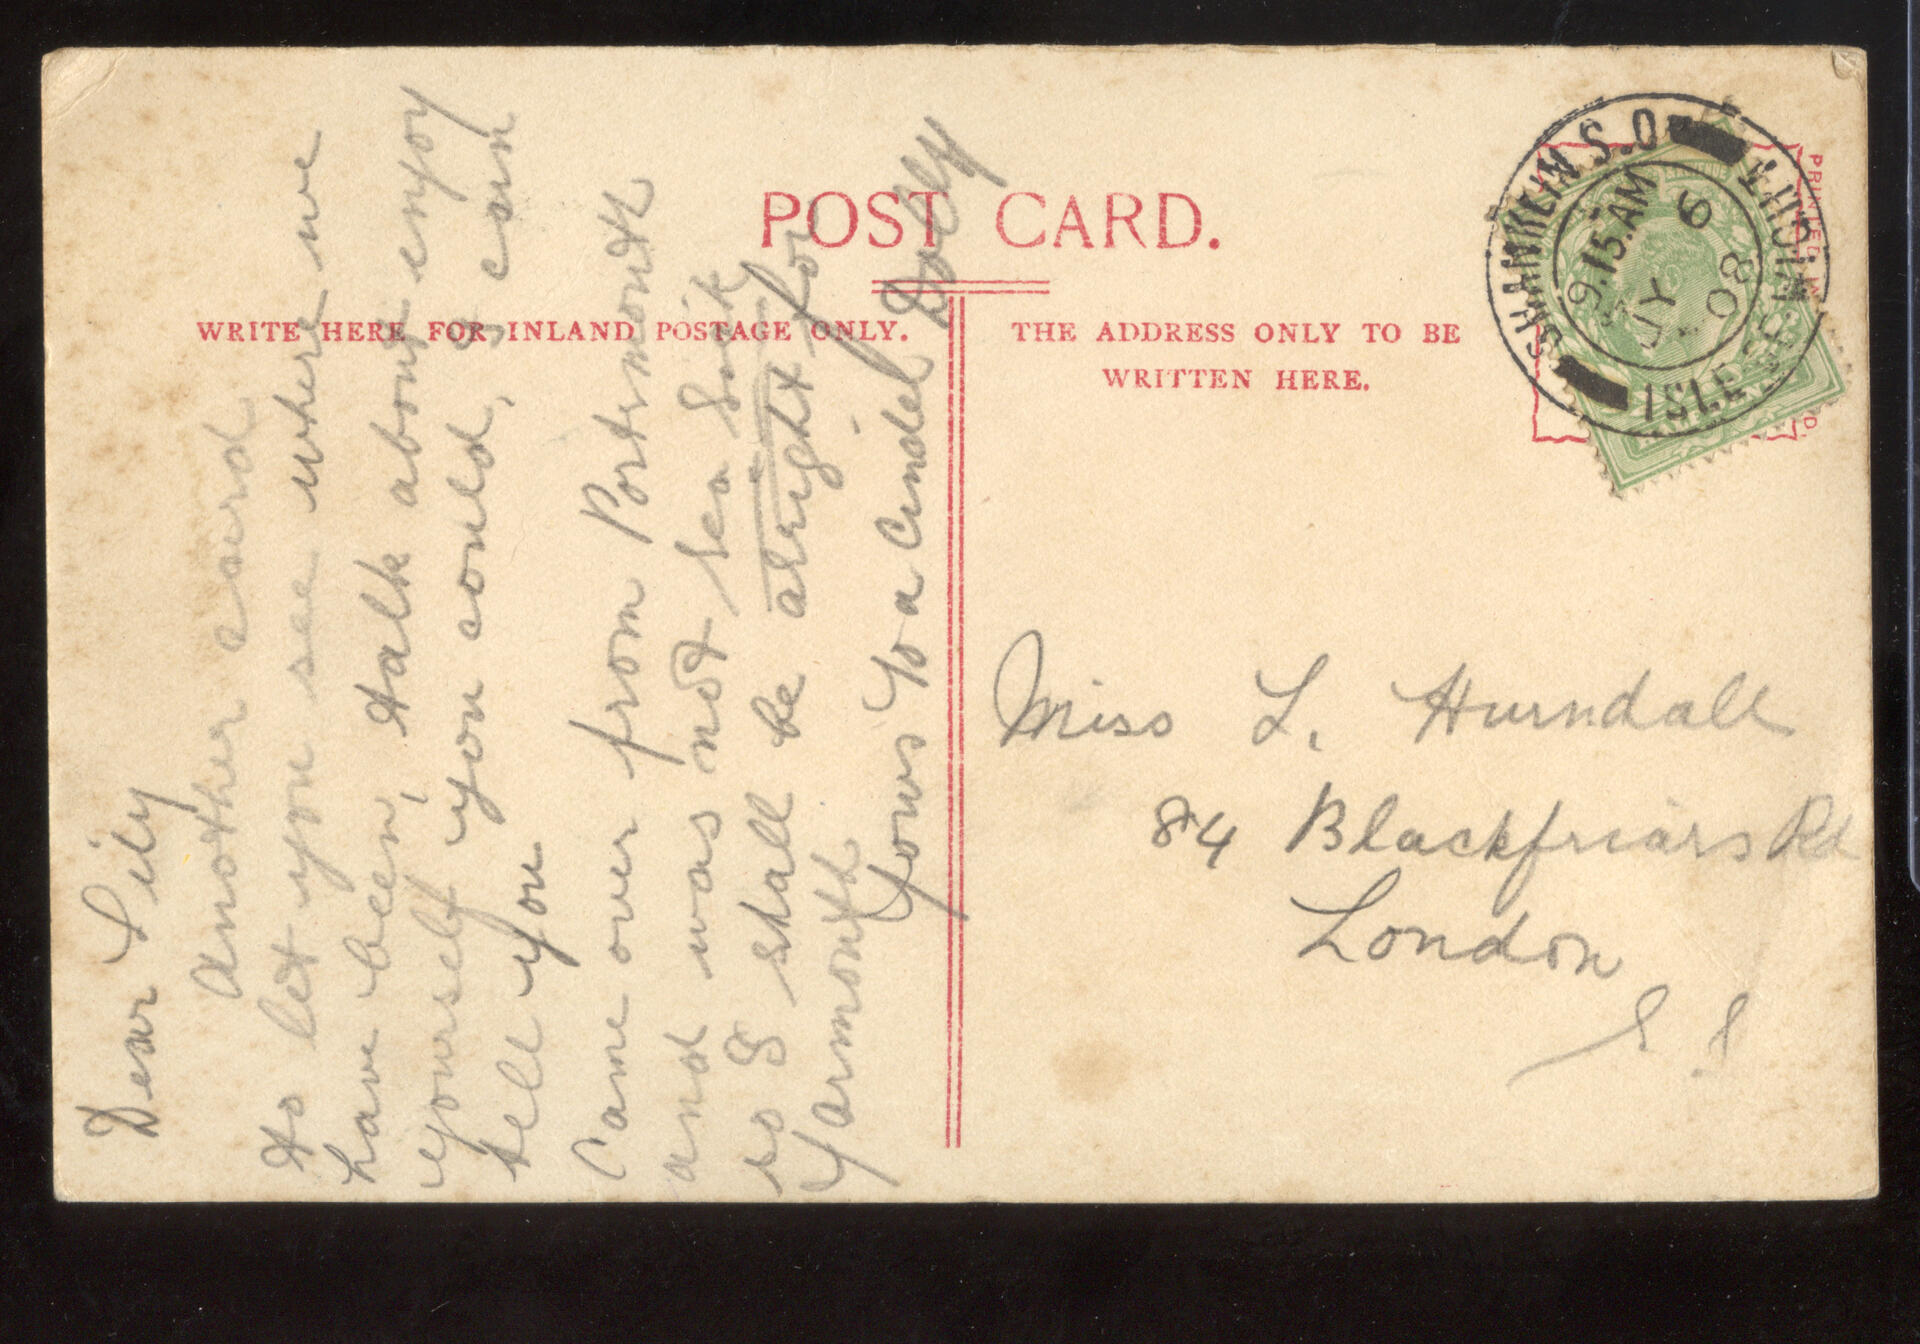 POST CARD.
WRITE HERE FOR INLAND POSTAGE ONLY.
THE ADDRESS ONLY TO BE
WRITTEN HERE.
SHANKLIN S.O
I. WIGHT
ISLE
9.15 AM
JY 6
08
Dear Lily
another card
to let you see where we
have been, talk about enjoy
yourself you could, I can
tell you
Came over from Portsmouth
and was not sea sick
so I shall be alright for
Yarmouth
Yours to a Cinder Dolly
Miss L. Hurndall
84 Blackfriars Rd
London
S E